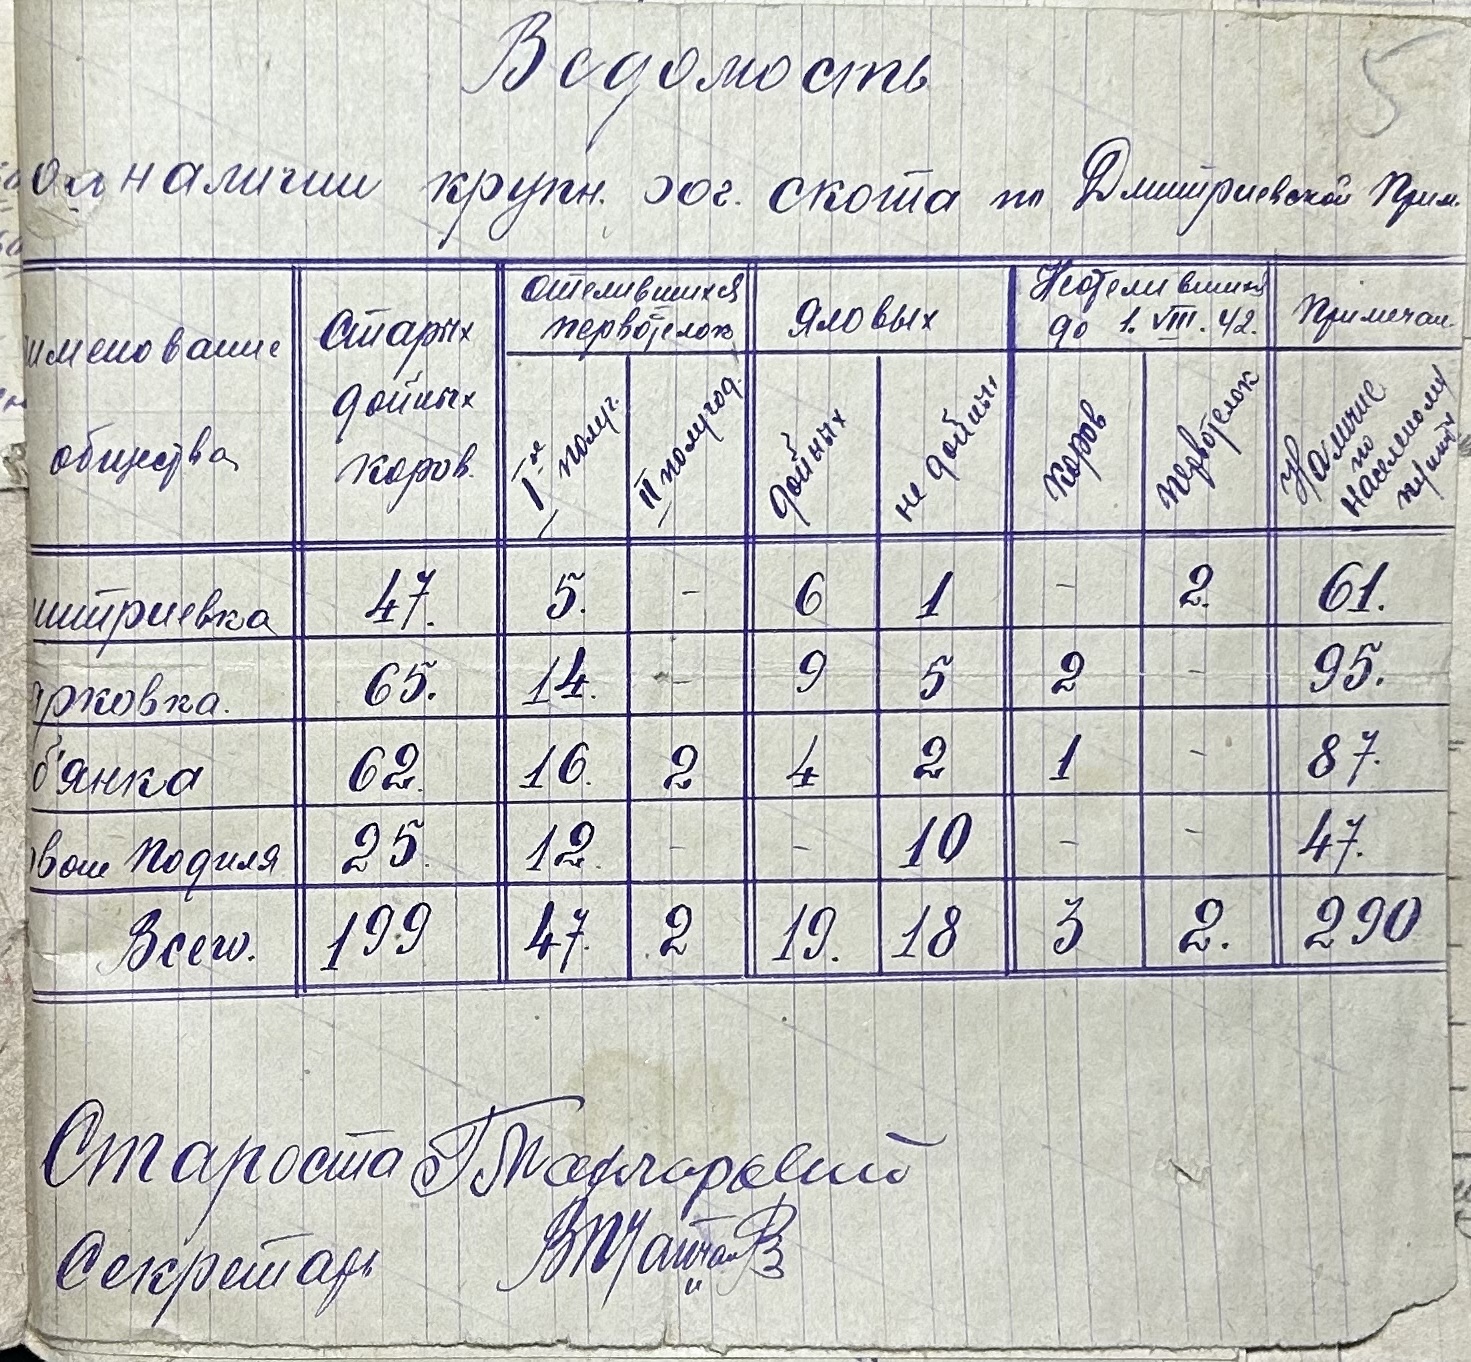 5
Ведомость
о наличии крупн. рог. скота по Дмитриевской Прим.
именование общества
Старых дойных коров.
отелившихся первотелок
Iое полуг.
II полугод.
Яловых
дойных
не дойных
Неотелившихся до 1. VIII. 42.
коров
первотелок
Примечан.
Наличие по населеному пункту
митриевка 47. 5. - 6 1 - 2. 61.
рковка. 65. 14. - 9 5 2 - 95.
б'янка 62. 16. 2 4 2 1 - 87.
вои Подиля 25. 12. - - 10 - - 47.
Всего. 199 47. 2 19. 18 3 2. 290
Староста
Секретарь